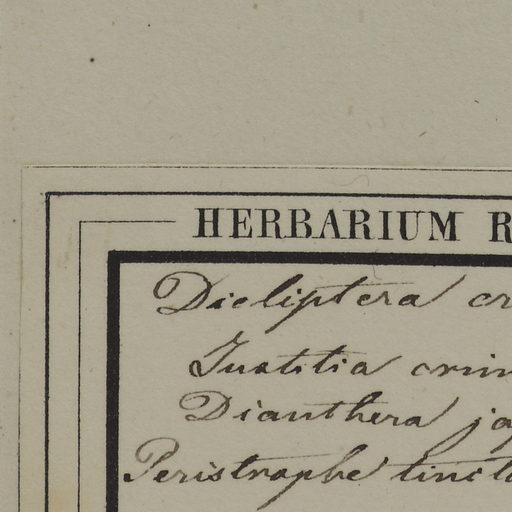 HERBARIUM R
Dicliptera cr
Justitia crin
Dianthera ja
Peristrophe tincto